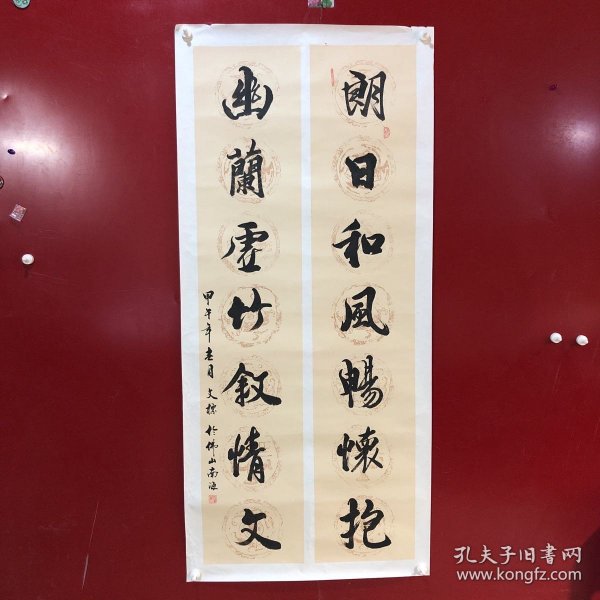 朗日和風暢懷抱
幽蘭虚竹叙情文
甲午年春月文標於佛山南海
孔夫子旧書网
www.kongfz.com